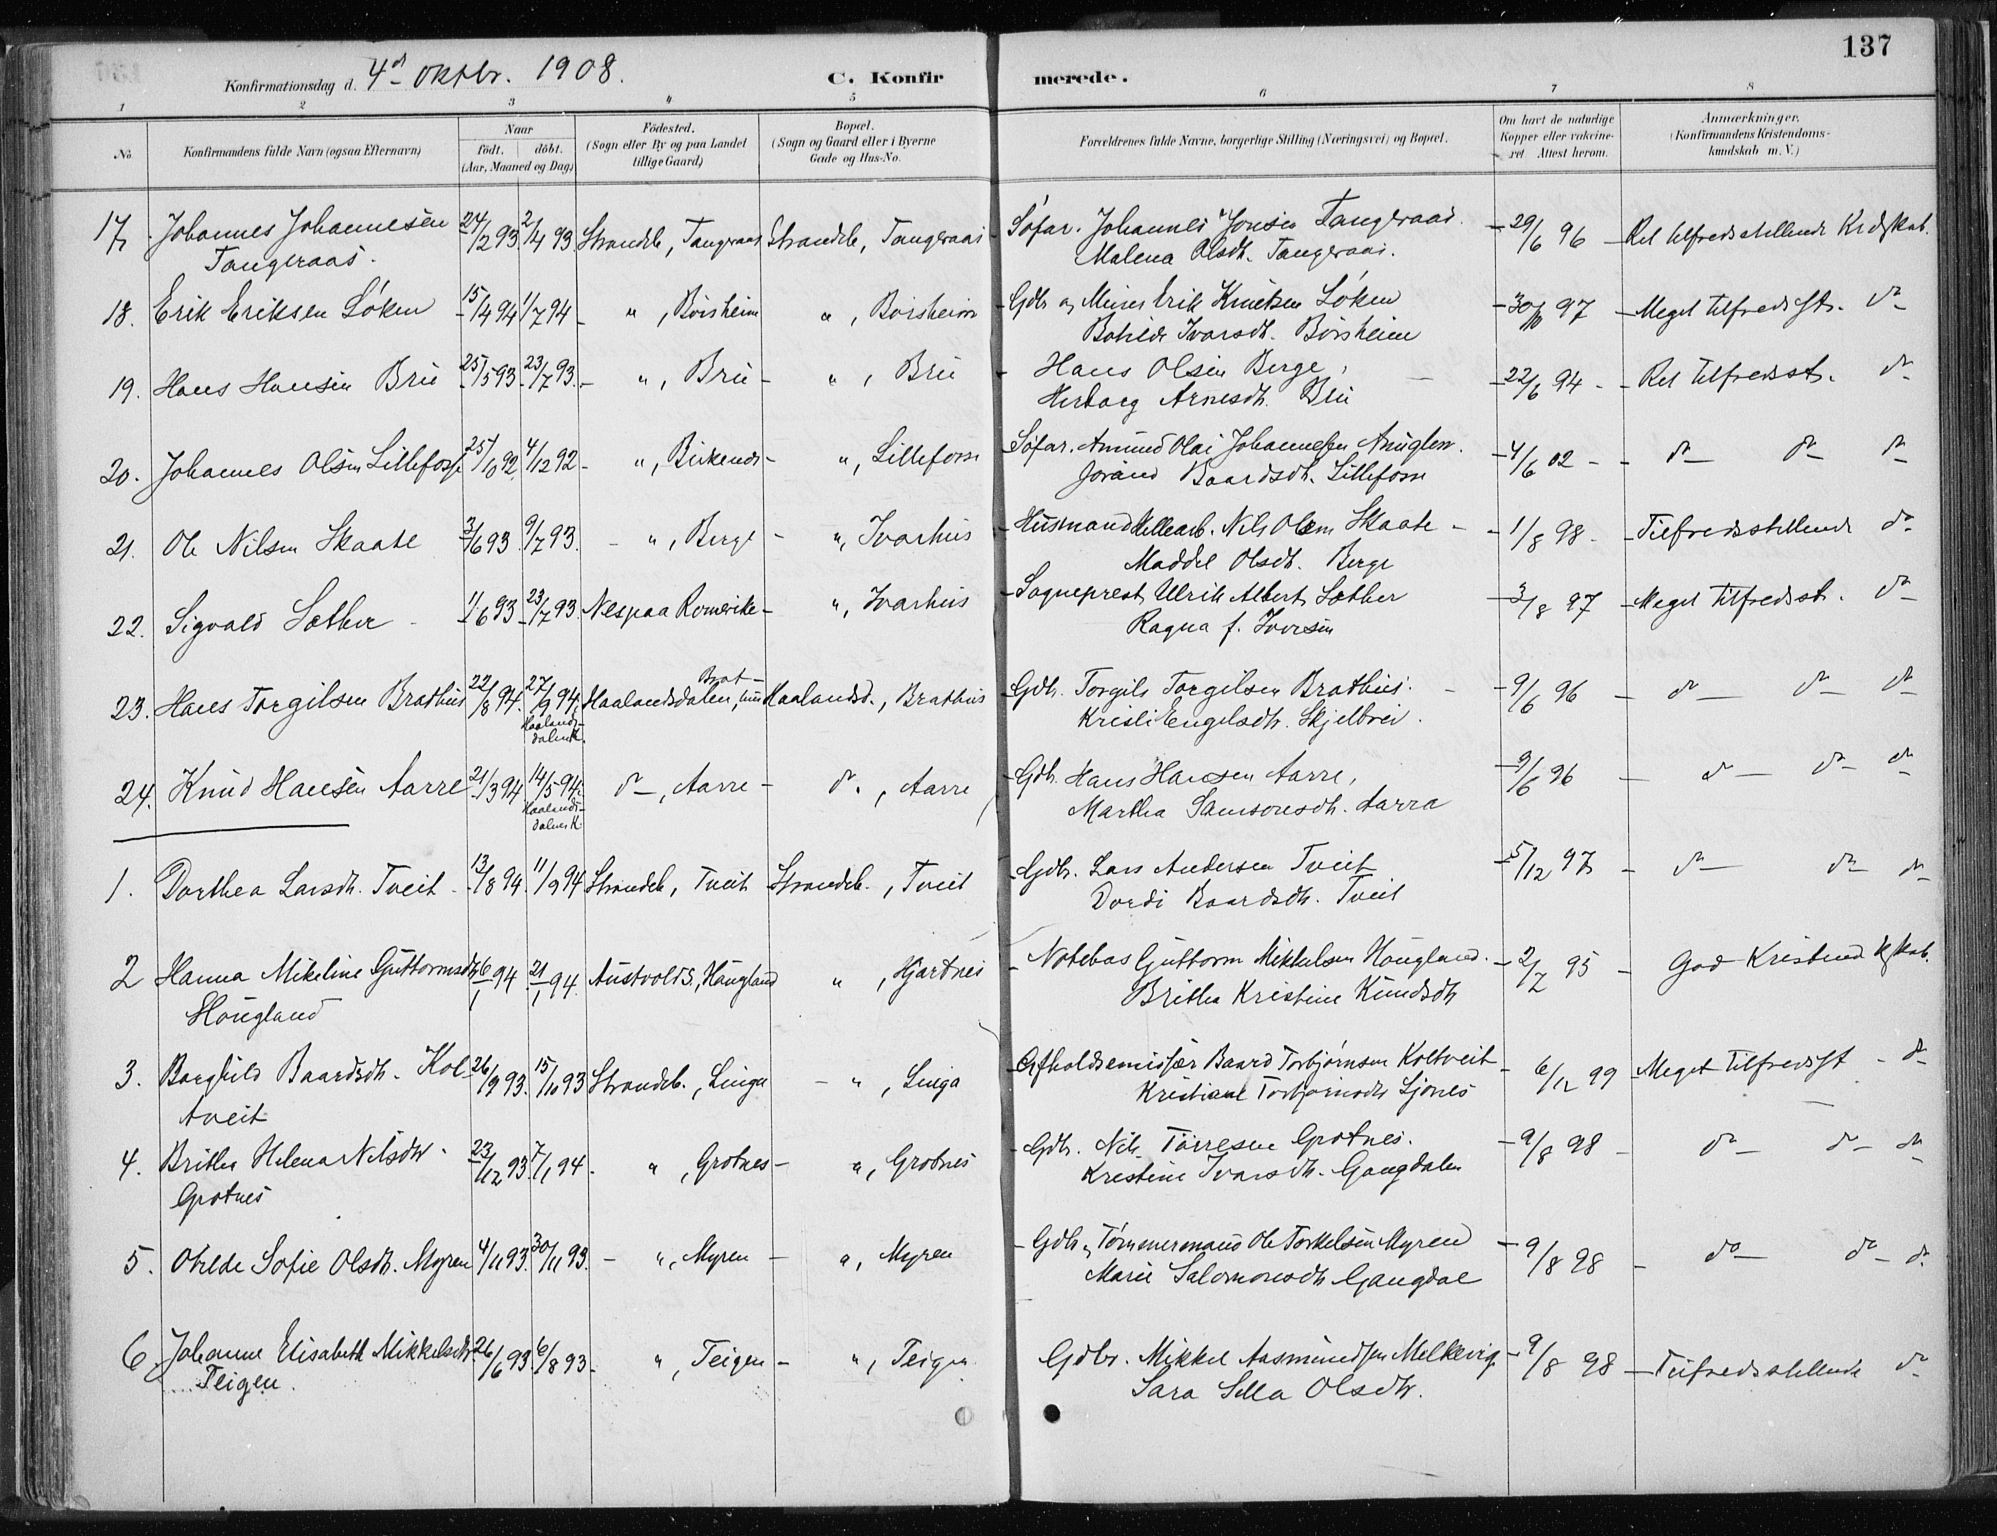 137
Konfirmationsdag d. 4de Oktbr. 1908.
C. Konfirmerede.
1 2 3 4 5 6 7 8
No.
Konfirmandens fulde Navn (ogsaa Efternavn)
Naar
födt. döbt.
(Aar, Maaned og Dag)
Födested.
(Sogn eller By og paa Landet
tillige Gaard)
Bopæl.
(Sogn og Gaard eller i Byerne
Gade og Hus-No.
Forældrenes fulde Navne, borgerlige Stilling (Næringsvei) og Bopæl.
Om havt de naturlige
Kopper eller vakcine-
ret Attest herom.
Anmærkninger.
(Konfirmandens Kristendoms-
kundskab m. V.)
17 Johannes Johannesen 24/2 93 2/4 93 Strandeb., Tangeraas Strandeb., Tangeraas Søfar. Johannes Jonsen Tangeraas. 29/6 96 Ret tilfredsstillende Krdskab.
Tangeraas. Malena Olsdt. Tangeraas.
18. Erik Eriksen Løken 15/4 94 1/7 94 " , Børsheim " , Børsheim Gdb og Murer Erik Knutsen Løken 30/10 97 Meget tilfredsst. do
Botilde Ivarsdt. Børsheim
19. Hans Hansen Bru 25/5 93 23/7 93. " , Bru " , Bru Hans Olsen Berge, 22/6 94 Ret tilfredsst. do
Herborg Arnesdt. Bru
20. Johannes Olsen Lillefosse 25/10 92 4/12 92 " , Birkenes " , Lillefosse Søfar. Amund Olai Johannessen Anuglen. 4/6 02 do do do
Jorand Baardsdt. Lillefosse
21. Ole Nilsen Skaate 3/6 93 9/7 93. " , Berge " , Ivarhus Husmand Nils Olsen Skaate 1/8 98 Tilfredsstillende do
Maddel Olsdt. Berge
22. Sigvald Sæther 11/6 93 23/7 93. Nes paa Romerike " , Ivarhus Sogneprest Ulrik Albert Sæther 3/8 97 Meget tilfredsst. do
Ragna f. Iversen
23. Hans Torgilsen Brathus 22/8 94. 27/9 94, Haalandsdalen, Brathus Haalandsd., Brathus Gdb. Torgils Torgilsen Brathus. 9/6 96 do do do
Haalands-
dalen K. Kristi Engelsdt. Skjelbrei.
24. Knud Hansen Aarre 21/3 94 14/5 94. do, Aarre do., Aarre Gdb. Hans Hansen Aarre, 9/6 96 do do do
Haalands-
dalen K. Martha Samsonsdt. Aarra
1. Dorthea Larsdt. Tveit 13/8 94. 11/9 94 Strandeb., Tveit Strandeb., Tveit Gdb. Lars Andersen Tveit 5/12 97 do do do
Dordi Baardsdt. Tveit
2 Hanna Mikeline Guttormsdt 6/1 94 21/1 94. Austvolds., Haugland " , Kjartnes Notebas Guttorm Mikkelsen Haugland. 2/7 95 God Kristend Kskab.
Haugland Britha Kristine Knudsdt
3. Borghild Baardsdt. Kol- 26/9 93. 15/10 93 Strandeb., Linga " , Linga Afholdsemissær Baard Torbjørnsen Koltveit 6/12 99 Meget tilfredsst do
tveit Kristiane Torbjørnsdt Sjones
4. Britha Helena Nilsdtr. 23/12 93 7/1 94. " , Grotnes " , Grotnes Gdb. Nils Tørresen Grotnes. 9/8 98 do do do
Grotnes Kristine Ivarsdt. Gangdalen
5. Otilde Sofie Olsdt. Myren 4/11 93. 30/11 93. " , Myren " , Myren Gdb og Tømmermand Ole Torkelsen Myren 9/8 98 do do do
Marie Salomonsdt Gangdal
6. Johanne Elisabeth Mikkelsdt 26/6 93 6/8 93. " , Teigen " , Teigen Gdbr. Mikkel Aasmundsen Melkevig 9/8 98 Tilfredsstillende do
Teigen. Sara Sella Olsdtr.